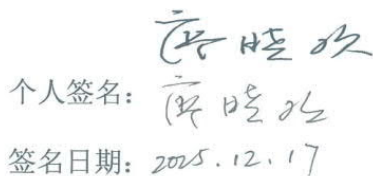 晓欢
个人签名：晓欢
签名日期：2025.12.17